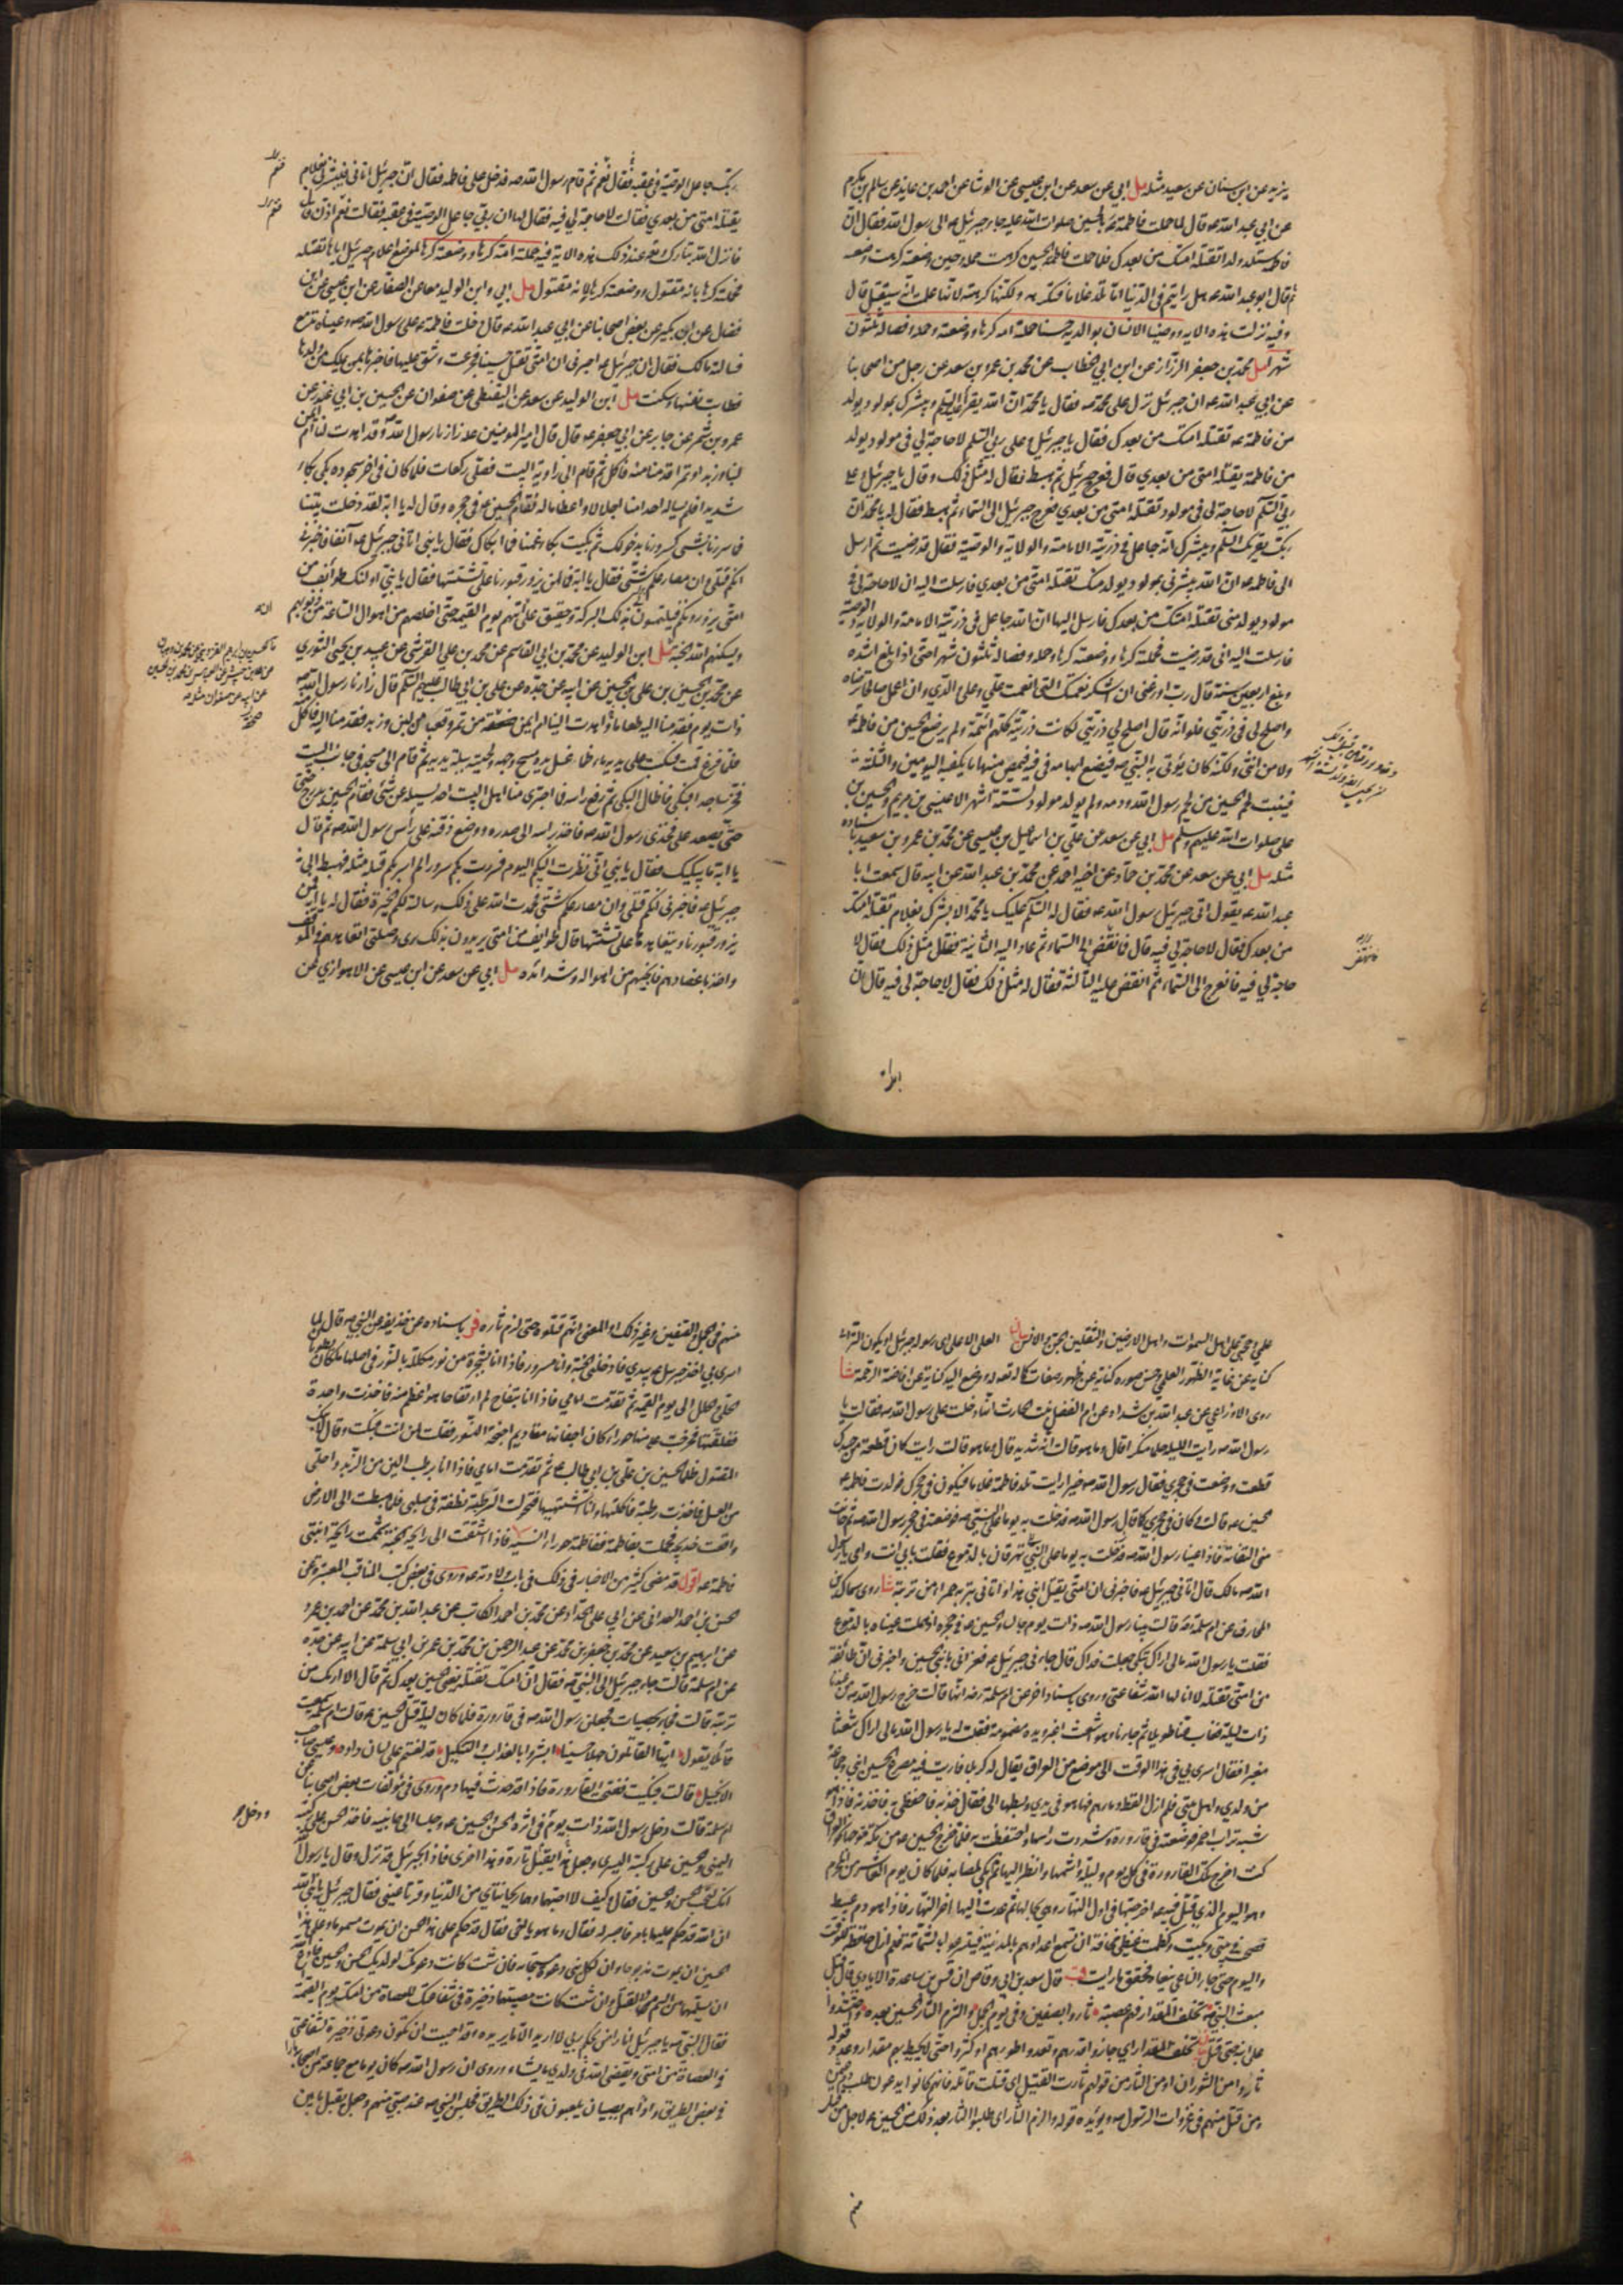 يزيد عن ابي سنان عن سعيد مثله مل ابي عن سعد عن ابن عيسى عن الوشا عن احمد بن عايذ عن سالم بن مكرم
عن ابي عبد الله ع قال لما حملت فاطمة بالحسين صلوات الله عليه جاء جبرئيل ع الى رسول الله فقال ان
فاطمة ستلد ولدا تقتله امتك من بعدك فلما حملت فاطمة الحسين كرهت حمله وحين وضعته كرهت وضعه
ثم قال ابو عبد الله ع هل رايتم في الدنيا اما تلد غلاما فتكرهه ولكنها كرهته لانها علمت انه سيقتل قال
وفيه نزلت هذه الاية ووصينا الانسان بوالديه حسنا حملته امه كرها ووضعته كرها وحمله وفصاله ثلثون
شهرا مل محمد بن جعفر الرزاز عن ابن ابي الخطاب عن محمد بن عمرو بن سعد عن رجل من اصحابنا
عن ابي عبد الله ع ان جبرئيل نزل على محمد ص فقال يا محمد ان الله يقرأ عليك السلم ويبشرك بمولود يولد
من فاطمة ع تقتله امتك من بعدك فقال يا جبرئيل وعلى ربي السلم لا حاجة لي في مولود يولد
من فاطمة يقتله امتي من بعدي قال فعرج جبرئيل ثم هبط فقال له مثل ذلك وقال يا جبرئيل وعلى
ربي السلم لا حاجة لي في مولود تقتله امتي من بعدي فعرج جبرئيل الى السماء ثم هبط فقال له يا محمد ان
ربك يقرئك السلم ويبشرك انه جاعل في ذريته الامامة والولاية والوصية فقال قد رضيت ثم ارسل
الى فاطمة ع ان الله يبشرني بمولود يولد منك تقتله امتي من بعدي فارسلت اليه ان لا حاجة لي في
مولود يولد مني تقتله امتك من بعدك فارسل اليها ان الله جاعل في ذريته الامامة والولاية والوصية
فارسلت اليه اني قد رضيت فحملته كرها ووضعته كرها وحمله وفصاله ثلثون شهرا حتى اذا بلغ اشده
وبلغ اربعين سنة قال رب اوزعني ان اشكر نعمتك التي انعمت علي وعلى والدي وان اعمل صالحا ترضاه
واصلح لي في ذريتي فلو انه قال اصلح لي ذريتي لكانت ذريته كلهم ائمة ولم يرضع الحسين من فاطمة
ولا من انثى ولكنه كان يؤتى به النبي ص فيضع ابهامه في فيه فيمص منها ما يكفيه اليومين والثلثة
فينبت لحم الحسين من لحم رسول الله ودمه ولم يولد مولود لستة اشهر الا عيسى بن مريم والحسين بن
علي صلوات الله عليهم وسلم مل ابي عن سعد عن علي بن اسماعيل بن عيسى عن محمد بن عمرو بن سعيد باسناده
مثله مل ابي عن سعد عن محمد بن حماد عن اخيه احمد عن محمد بن عبد الله عن ابيه قال سمعت ابا
عبد الله ع يقول اتى جبرئيل رسول الله ص فقال له السلم عليك يا محمد الا ابشرك بغلام تقتله امتك
من بعدك فقال لا حاجة لي فيه قال فانتقض الى السماء ثم عاد اليه الثانية فقال مثل ذلك فقال لا
حاجة لي فيه فانعرج الى السماء ثم انقض عليه الثالثة فقال له مثل ذلك فقال لا حاجة لي فيه قال ان
ربك جاعل الوصية في عقبه فقال نعم ثم قام رسول الله ص فدخل على فاطمة فقال ان جبرئيل اتاني فبشرني بغلام
يقتله امتي من بعدي فقالت لا حاجة لي فيه فقال لها ان ربي جاعل الوصية في عقبه فقالت نعم اذن قال
فانزل الله تبارك وتع عند ذلك هذه الاية فيه حملته امه كرها ووضعته كرها لموضع اعلام جبرئيل اياها بقتله
فحملته كرها بانه مقتول ووضعته كرها لانه مقتول مل ابي وابن الوليد معا عن الصفار عن ابن عيسى عن ابن
فضال عن ابن بكير عن بعض اصحابنا عن ابي عبد الله ع قال دخلت فاطمة ع على رسول الله ص وعيناه تدمع
فسالته مالك فقال ان جبرئيل ع اخبرني ان امتي تقتل حسينا فجزعت وشق عليها فاخبرها بمن يملك من ولدها
فطابت نفسها وسكنت مل ابن الوليد عن سعد عن اليقطيني عن صفوان عن الحسين بن ابي غندر عن
عمرو بن شمر عن جابر عن ابي جعفر ع قال قال امير المؤمنين ع زارنا رسول الله ص وقد اهدت لنا ام ايمن
لبنا وزبدا وتمرا قدمنا منه فاكل ثم قام الى زاوية البيت فصلى ركعات فلما كان في اخر سجوده بكى بكاء
شديدا فلم يساله احد منا اجلالا واعظاما له فقام الحسين ع في حجره وقال له يا ابه لقد دخلت بيتنا
فما سررنا بشئ كسرورنا بدخولك ثم بكيت بكاء غمنا فما ابكاك فقال يا بني اتاني جبرئيل ع آنفا فاخبرني
انكم قتلى وان مصارعكم شتى فقال يا ابه فما لمن يزور قبورنا على تشتتها فقال يا بني اولئك طوائف من
امتي يزورونكم فيلتمسون بذلك البركة وحقيق علي ان اتيهم يوم القيمة حتى اخلصهم من اهوال الساعة من ذنوبهم
ويسكنهم الله الجنة مل ابن الوليد عن محمد بن ابي القاسم عن محمد بن علي القرشي عن عبيد بن يحيى الثوري
عن محمد بن الحسين بن علي بن الحسين عن ابيه عن جده عن علي بن ابي طالب عليهم السلم قال زارنا رسول الله ص
ذات يوم فقدمنا اليه طعاما واهدت الينا ام ايمن صحفة من تمر وقعبا من لبن وزبد فقدمنا اليه فاكل
فلما فرغ قمت فسكبت على يديه ماء فلما غسل يده مسح وجهه ولحيته ببلة يديه ثم قام الى مسجد في جانب البيت
فخر ساجدا فبكى فاطال البكى ثم رفع راسه فما اجترى منا اهل البيت احد يسئله عن شئ فقام الحسين يدرج
حتى يصعد على فخذى رسول الله ص فاخذ براسه الى صدره ووضع ذقنه على راس رسول الله ص ثم قال
يا ابه ما يبكيك فقال يا بني اني نظرت اليكم اليوم فسررت بكم سرورا لم اسر بكم قبله مثله فهبط الي
جبرئيل ع فاخبرني انكم قتلى وان مصارعكم شتى فحمدت الله على ذلك وسالته لكم الخيرة فقال له يا ابه فمن
يزور قبورنا ويتعاهدها على تشتتها قال طوايف من امتي يريدون بذلك بري وصلتي اتعاهدهم في الموقف
واخذ باعضادهم فانجيهم من اهواله وشدائده مل ابي عن سعد عن ابن عيسى عن الاهوازي عن
علي وحجتي على اهل السموات واهل الارضين والثقلين الجن والانس بيان العلى الاعلى اي رسوله جبرئيل او يكون الترائي
كناية عن غاية الظهور العلمي وحسن صوره كناية عن ظهور صفات كماله تع له ووضع اليد كناية عن افاضة الرحمة شا
روى الاوزاعي عن عبد الله بن شداد عن ام الفضل بنت الحارث انها دخلت على رسول الله ص فقالت يا
رسول الله ص رايت الليلة حلما منكرا قال وما هو قالت انه شديد قال وما هو قالت رايت كان قطعة من جسدك
قطعت ووضعت في حجري فقال رسول الله ص خيرا رايت تلد فاطمة غلاما فيكون في حجرك فولدت فاطمة ع
الحسين ع قالت وكان في حجري كما قال رسول الله ص فدخلت به يوما على النبي ص فوضعته في حجر رسول الله ص ثم حانت
مني التفاتة فاذا عينا رسول الله ص تهرقان بالدموع فقلت بابي انت وامي يا رسول
الله ص مالك قال اتاني جبرئيل ع فاخبرني ان امتي يقتل ابني هذا واتاني بتربة حمراء من تربته شا روى سماك بن
المخارق عن ام سلمة رضه قالت بينا رسول الله ص ذات يوم جالسا والحسين ع في حجره اذ هملت عيناه بالدموع
فقلت يا رسول الله مالي اراك تبكي جعلت فداك قال جاءني جبرئيل ع فعزاني بابني الحسين واخبرني ان طائفة
من امتي تقتله لا انالها الله شفاعتي وروى باسناد اخر عن ام سلمة رضه انها قالت خرج رسول الله ص من عندنا
ذات ليلة فغاب عنا طويلا ثم جاءنا وهو اشعث اغبر ويده مضمومة فقلت له يا رسول الله مالي اراك شعثا
مغبرا فقال اسري بي في هذا الوقت الى موضع من العراق يقال له كربلا فاريت فيه مصرع الحسين ابني وجماعة
من ولدي واهل بيتي فلم ازل القط دماءهم فها هو في يدي وبسطها الي فقال خذيه فاحتفظي به فاخذته فاذا هو
شبه تراب احمر فوضعته في قارورة وشددت راسها واحتفظت به فلما خرج الحسين ع من مكة متوجها نحو العراق
كنت اخرج تلك القارورة في كل يوم وليلة واشمها وانظر اليها ثم ابكي لمصابه فلما كان يوم العاشر من المحرم
وهو اليوم الذي قتل فيه ع اخرجتها في اول النهار وهي بحالها ثم عدت اليها اخر النهار فاذا هو دم عبيط
فصحت في بيتي وبكيت وكظمت غيظي مخافة ان يسمع اعداؤهم بالمدينة فيتسرعوا بالشماتة فلم ازل حافظة للوقت
واليوم حتى جاء الناعي ينعاه فحقق ما رايت قب قال سعد بن ابي وقاص ان قس بن ساعدة الايادي قال قبل
مبعث النبي ص تخلف المقدار فهم عصبة ثاروا بصفين وفي يوم الجمل والتزم الثار الحسين بعده واحتشدوا
على ابنه حتى قتل بيان تخلف المقدار اي جازوا قدرهم وتعدوا طورهم او كثروا حتى لا يحيط بهم مقدار وعدد وقوله
ثاروا من الثوران او من الثار من قولهم ثأرت القتيل اي قتلت قاتله فانهم كانوا يدعون طلب دم عثمن
ومن قتل منهم في غزوات الرسول ص ويؤيده قوله والزم الثار اي طلبوا الثار بعد ذلك من الحسين ع لاجل من قتل
منهم في الجمل وصفين وغير ذلك او المعنى انهم قتلوه حتى لزم ثاره فر باسناده عن حذيفة عن النبي ص قال لما
اسري بي اخذ جبرئيل ع بيدي فادخلني الجنة وانا مسرور فاذا انا بشجرة من نور مكللة بالنور في اصلها ملكان يطويان
الحلي والحلل الى يوم القيمة ثم تقدمت امامي فاذا انا بتفاح لم ار تفاحا هو اعظم منه فاخذت واحدة
ففلقتها فخرجت علي منها حوراء كان اجفانها مقاديم اجنحة النسور فقلت لمن انت فبكت وقالت لابنك
المقتول ظلما الحسين بن علي بن ابي طالب ع ثم تقدمت امامي فاذا انا برطب الين من الزبد واحلى
من العسل فاخذت رطبة فاكلتها وانا اشتهيها فتحولت الرطبة نطفة في صلبي فلما هبطت الى الارض
واقعت خديجة فحملت بفاطمة ففاطمة حوراء انسية فاذا اشتقت الى رائحة الجنة شممت رائحة ابنتي
فاطمة ع اقول قد مضى كثير من الاخبار في ذلك في باب ولادته ع وروى في بعض كتب المناقب المعتبرة عن
الحسن بن احمد الهمداني عن ابي علي الحداد عن محمد بن احمد الكاتب عن عبد الله بن محمد عن احمد بن عمرو
عن ابراهيم بن سعيد عن محمد بن جعفر بن محمد عن عبد الرحمن بن محمد بن عمر بن ابي سلمة عن ابيه عن جده
عن ام سلمة قالت جاء جبرئيل الى النبي ص فقال ان امتك تقتله يعني الحسين بعدك ثم قال الا اريك من
تربته قالت فجاء بحصيات فجعلهن رسول الله ص في قارورة فلما كان ليلة قتل الحسين ع قالت ام سلمة سمعت
قائلا يقول ايها القاتلون جهلا حسينا ابشروا بالعذاب والتنكيل قد لعنتم على لسان داود وعيسى صاحب
الانجيل قالت فبكيت ففتحت القارورة فاذا قد حدث فيها دم وروى في مؤلفات بعض اصحابنا عن
ام سلمة قالت دخل رسول الله ذات يوم في اثره الحسن والحسين ع وجلسا الى جانبيه فاخذ الحسن على ركبته
اليمنى والحسين على ركبته اليسرى وجعل يقبل هذا تارة وهذا اخرى فاذا جبرئيل قد نزل وقال يا رسول الله
انك لتحب الحسن والحسين فقال وكيف لا احبهما وهما ريحانتاي من الدنيا وقرتا عيني فقال جبرئيل يا نبي الله
ان الله قد حكم عليهما بامر فاصبر له فقال وما هو يا اخي فقال قد حكم على هذا الحسن ان يموت مسموما وعلى هذا
الحسين ان يموت مذبوحا وان لكل نبي دعوة مستجابة فان شئت كانت دعوتك لولديك الحسن والحسين فادع الله
ان يسلمهما من السم والقتل وان شئت كانت مصيبتهما ذخيرة في شفاعتك للعصاة من امتك يوم القيمة
فقال النبي ص يا جبرئيل انا راض بحكم ربي لا اريد الا ما يريده وقد احببت ان تكون دعوتي ذخيرة لشفاعتي
في العصاة من امتي ويقضي الله في ولدي ما يشاء وروى ان رسول الله ص كان يوما مع جماعة من اصحابه مارا
في بعض الطريق واذا هم بصبيان يلعبون في ذلك الطريق فجلس النبي ص عند صبي منهم وجعل يقبل ما بين